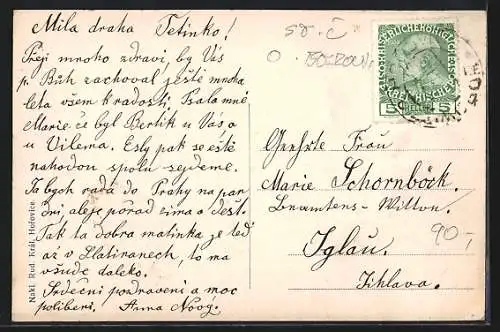 Mila draha Tetinko!
Přeji mnoho zdravi, by Vás
p. Bůh zachoval ještě mnoha
leta všem k radosti. Psala mně
Marie že byl Bertik u Vás a
u Vilema. Esly pak se ještě
nahodou spolu sejdeme.
Ja bych ráda do Prahy na par
dní, ale je pořád zima a dešť.
Tak ta dobra matinka je teď
až v Slatiňanech, to ma
všude daleko.
Srdečni pozdraveni a moc
polibeni. Anna Nový.
Nakl. Rud. Král, Hořovice.
sv. Č
KAISERLICHE KÖNIGLICHE
ÖSTERREICHISCHE POST
5 HELLER 5
Geehrte Frau
Marie Schornböck.
Beamtens-Wittwe.
90,-
Iglau.
Jihlava.